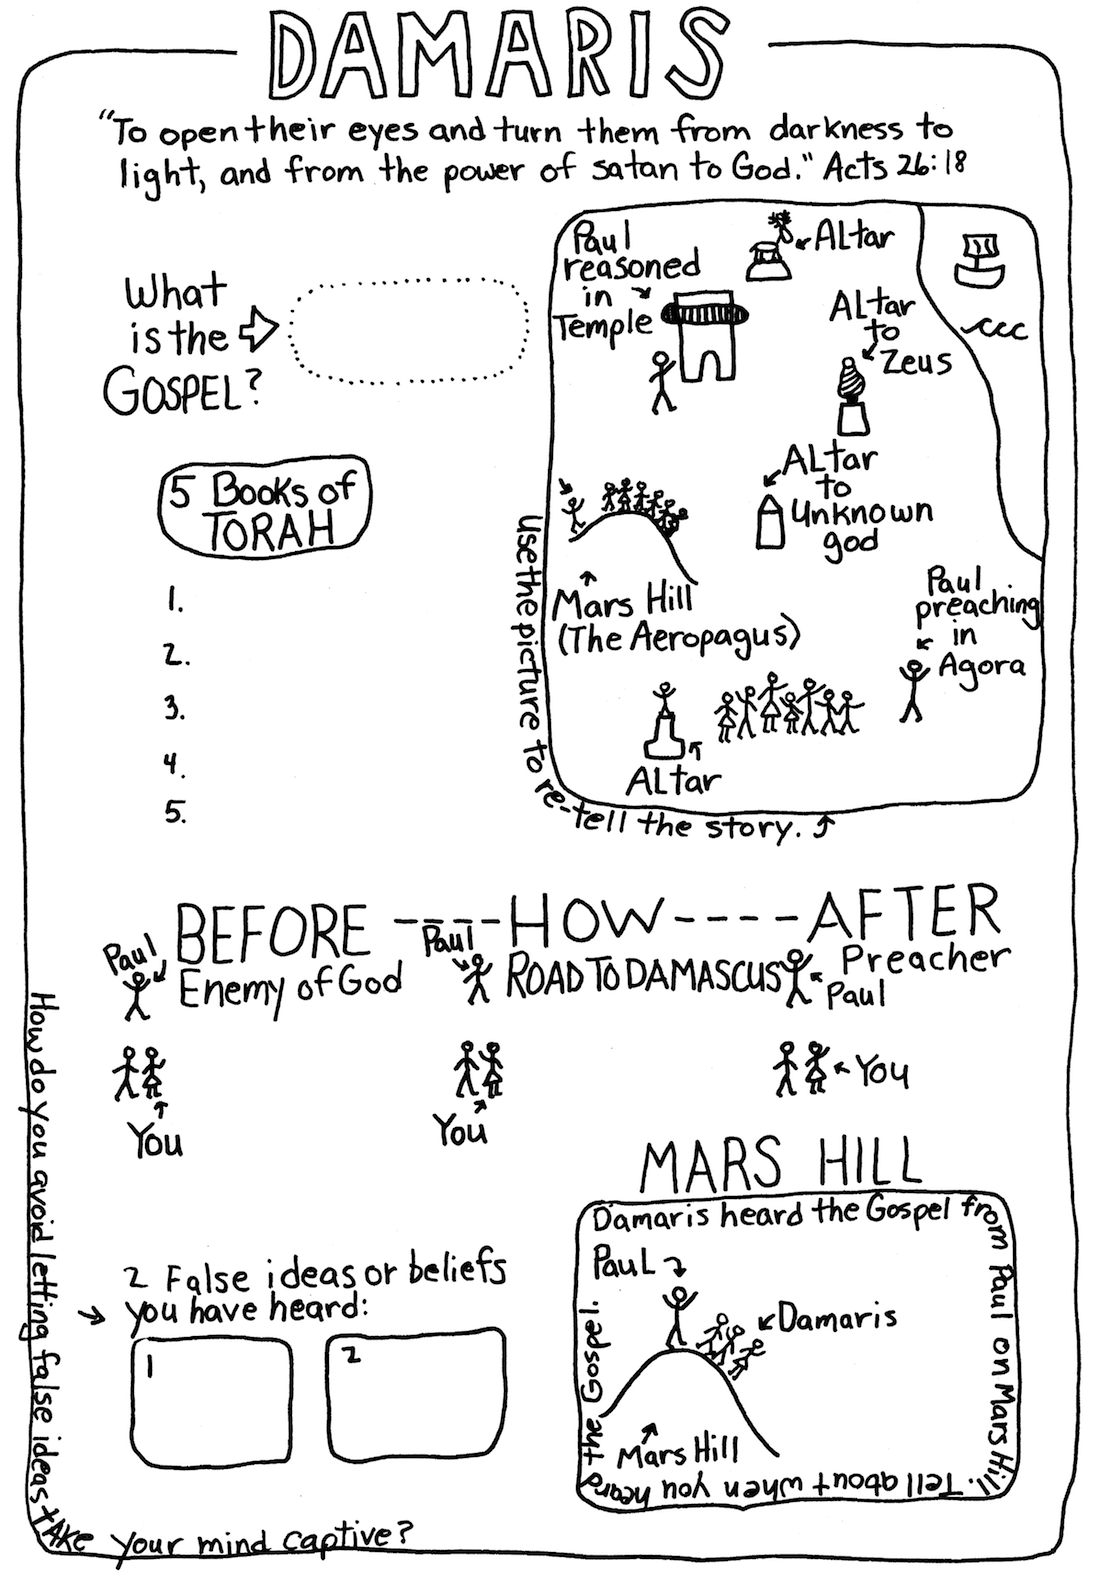 DAMARIS
"To open their eyes and turn them from darkness to
light, and from the power of satan to God." Acts 26:18
What
is the
GOSPEL?
5 Books of
TORAH
1.
2.
3.
4.
5.
Paul
reasoned
in
Temple
ALtar
ALtar
to
Zeus
ALtar
to
Unknown
god
Mars Hill
(The Aeropagus)
Paul
preaching
in
Agora
ALtar
Use the picture to re-tell the story.
BEFORE ----HOW----AFTER
Paul
Enemy of God
Paul
ROAD TO DAMASCUS
Preacher
Paul
You
You
You
MARS HILL
Damaris heard the Gospel from Paul on Mars Hill. Tell about when you heard the Gospel.
PauL
Damaris
Mars Hill
2 False ideas or beliefs
you have heard:
1
2
How do you avoid letting false ideas tAKe your mind captive?